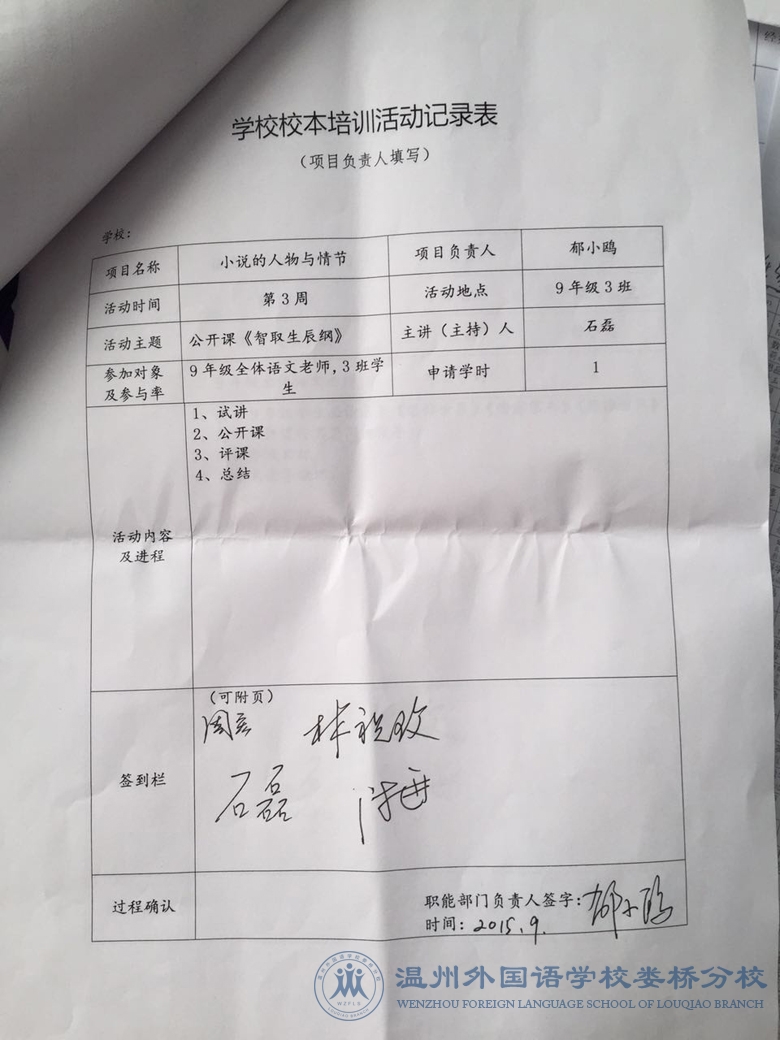 学校校本培训活动记录表
（项目负责人填写）
学校：
项目名称 小说的人物与情节 项目负责人 郁小鸥
活动时间 第3周 活动地点 9年级3班
活动主题 公开课《智取生辰纲》 主讲（主持）人 石磊
参加对象及参与率 9年级全体语文老师，3班学生 申请学时 1
活动内容及进程
1、试讲
2、公开课
3、评课
4、总结
签到栏
（可附页）
石磊
过程确认
职能部门负责人签字：郁小鸥
时间：2015.9.
温州外国语学校娄桥分校
WENZHOU FOREIGN LANGUAGE SCHOOL OF LOUQIAO BRANCH